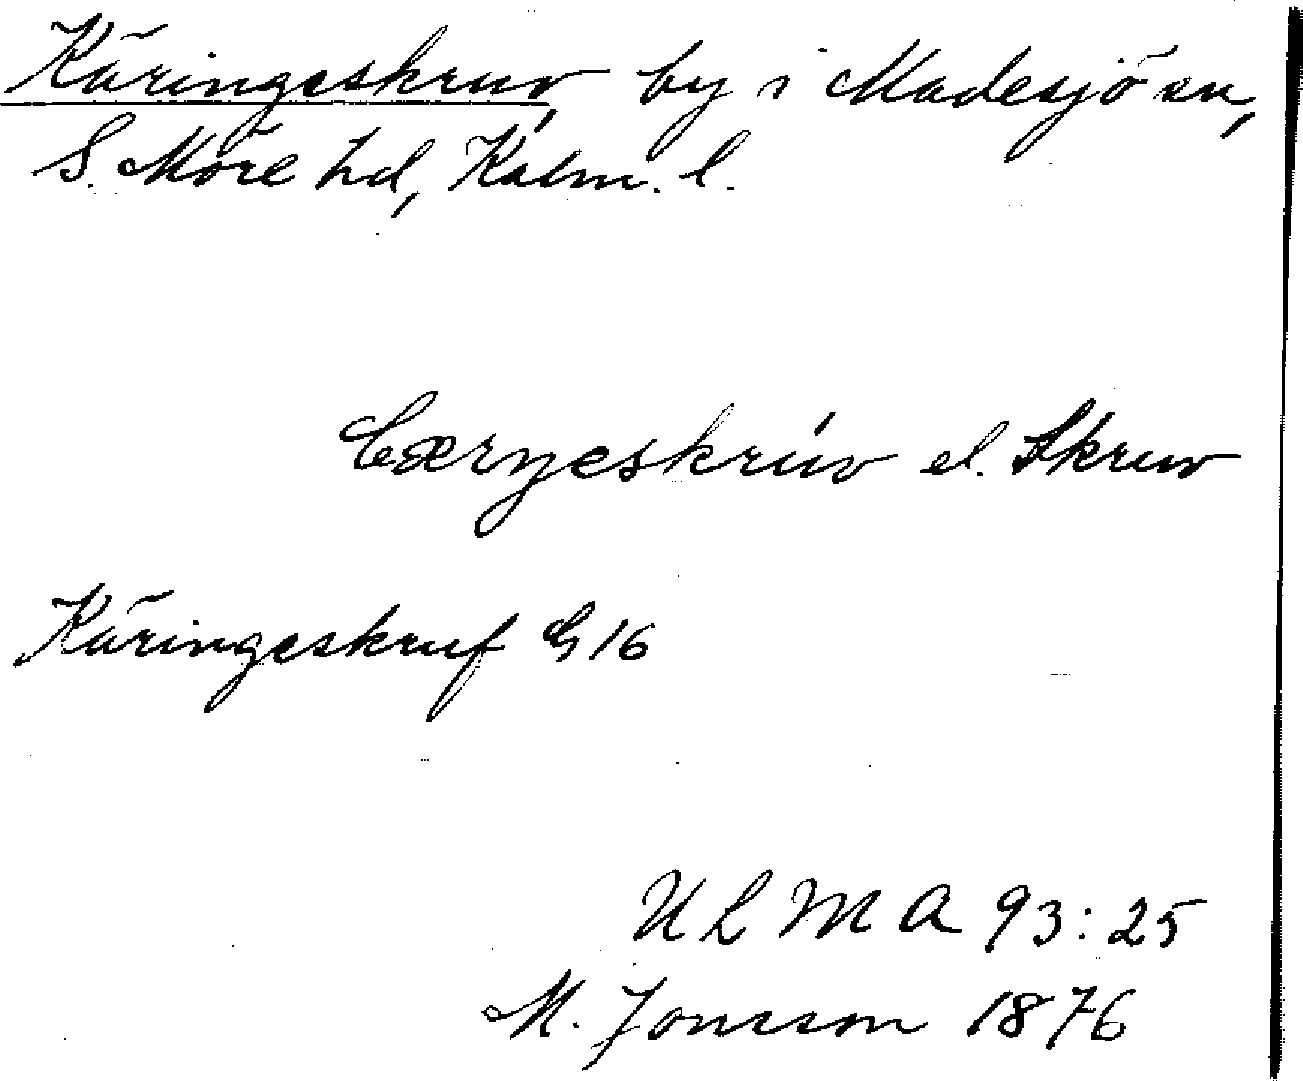 Käringeskruv, by i Madesjö sn,
S. Möre hd, Kalm. l.
Cærŋeskrúv el. Skruv
Käringeskruf G 16
ULMA 93:25
M. Jonsson 1876